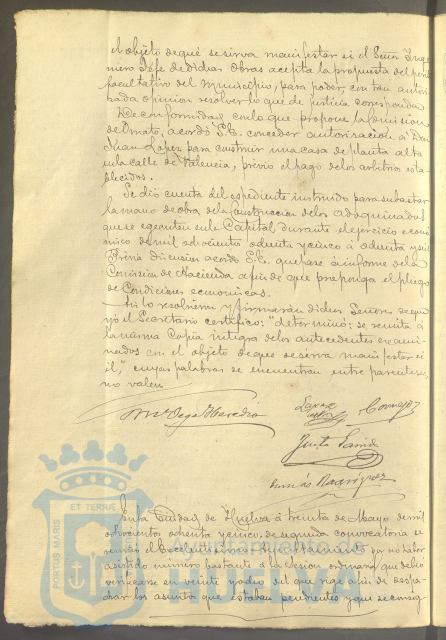 el objeto de qué se sirva manifestar si el Señor Inge
niero Jéfe de dichas obras acepta la propuesta del perito
facultativo del Municipio, para poder, con tan autori
zada opinion resolver lo que de justicia corresponda.
De conformidad con lo que propone la Comision
de Ornato, acordó S.E. conceder autorizacion á Don
Juan Lopez para construir una casa de planta alta
en la calle de Valencia, prévio el pago de los arbitrios esta
blecidos.
Se dió cuenta del espediente instruido para subastar
la mano de obra de la construccion de los adoquinados
que se egecuten en la Capital durante el ejercicio econó
mico de mil ochocientos ochenta y cinco á ochenta y seis
Prévia discusion acordó S.E. que pase á informe de la
Comision de Hacienda á fin de que proponga el pliego
de Condiciones economicas.
Así lo resolvieron y firmarán dichos Señores de que
yo el Secretario certifico: "determinó: se remita á
la misma Copia integra de los antecedentes exami
nados con el objeto de que se serva manifestar si
él," cuyas palabras se encuentran entre parentesis,
no valen
Justo
Tomás Rodriguez
En la Ciudad de Huelva á treinta de Mayo de mil
ochocientos ochenta y cinco, de segunda convocatoria se
reunió el Excelentisimo Ayuntamiento por no haber
asistido número bastante á la Sesion ordinaria que debió
verificarse en veinte y ocho del que rige á fin de despa
char los asuntos que estaban pendientes y que se consig
ET TERRÆ
PORTUS MARIS
Ayuntamiento de
HUELVA